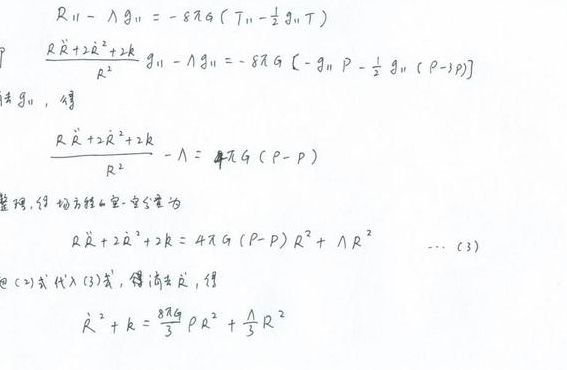 R₁₁ - Λg₁₁ = -8πG(T₁₁ - ½g₁₁T)
(RR̈ + 2Ṙ² + 2k)/R² g₁₁ - Λg₁₁ = -8πG[-g₁₁P - ½g₁₁(ρ-3P)]
消去g₁₁，得
(RR̈ + 2Ṙ² + 2k)/R² - Λ = 4πG(ρ-P)
整理，得场方程的空-空分量为
RR̈ + 2Ṙ² + 2k = 4πG(ρ-P)R² + ΛR² ... (3)
把(2)式代入(3)式，消去R̈，得
Ṙ² + k = 8πG/3 ρR² + Λ/3 R²